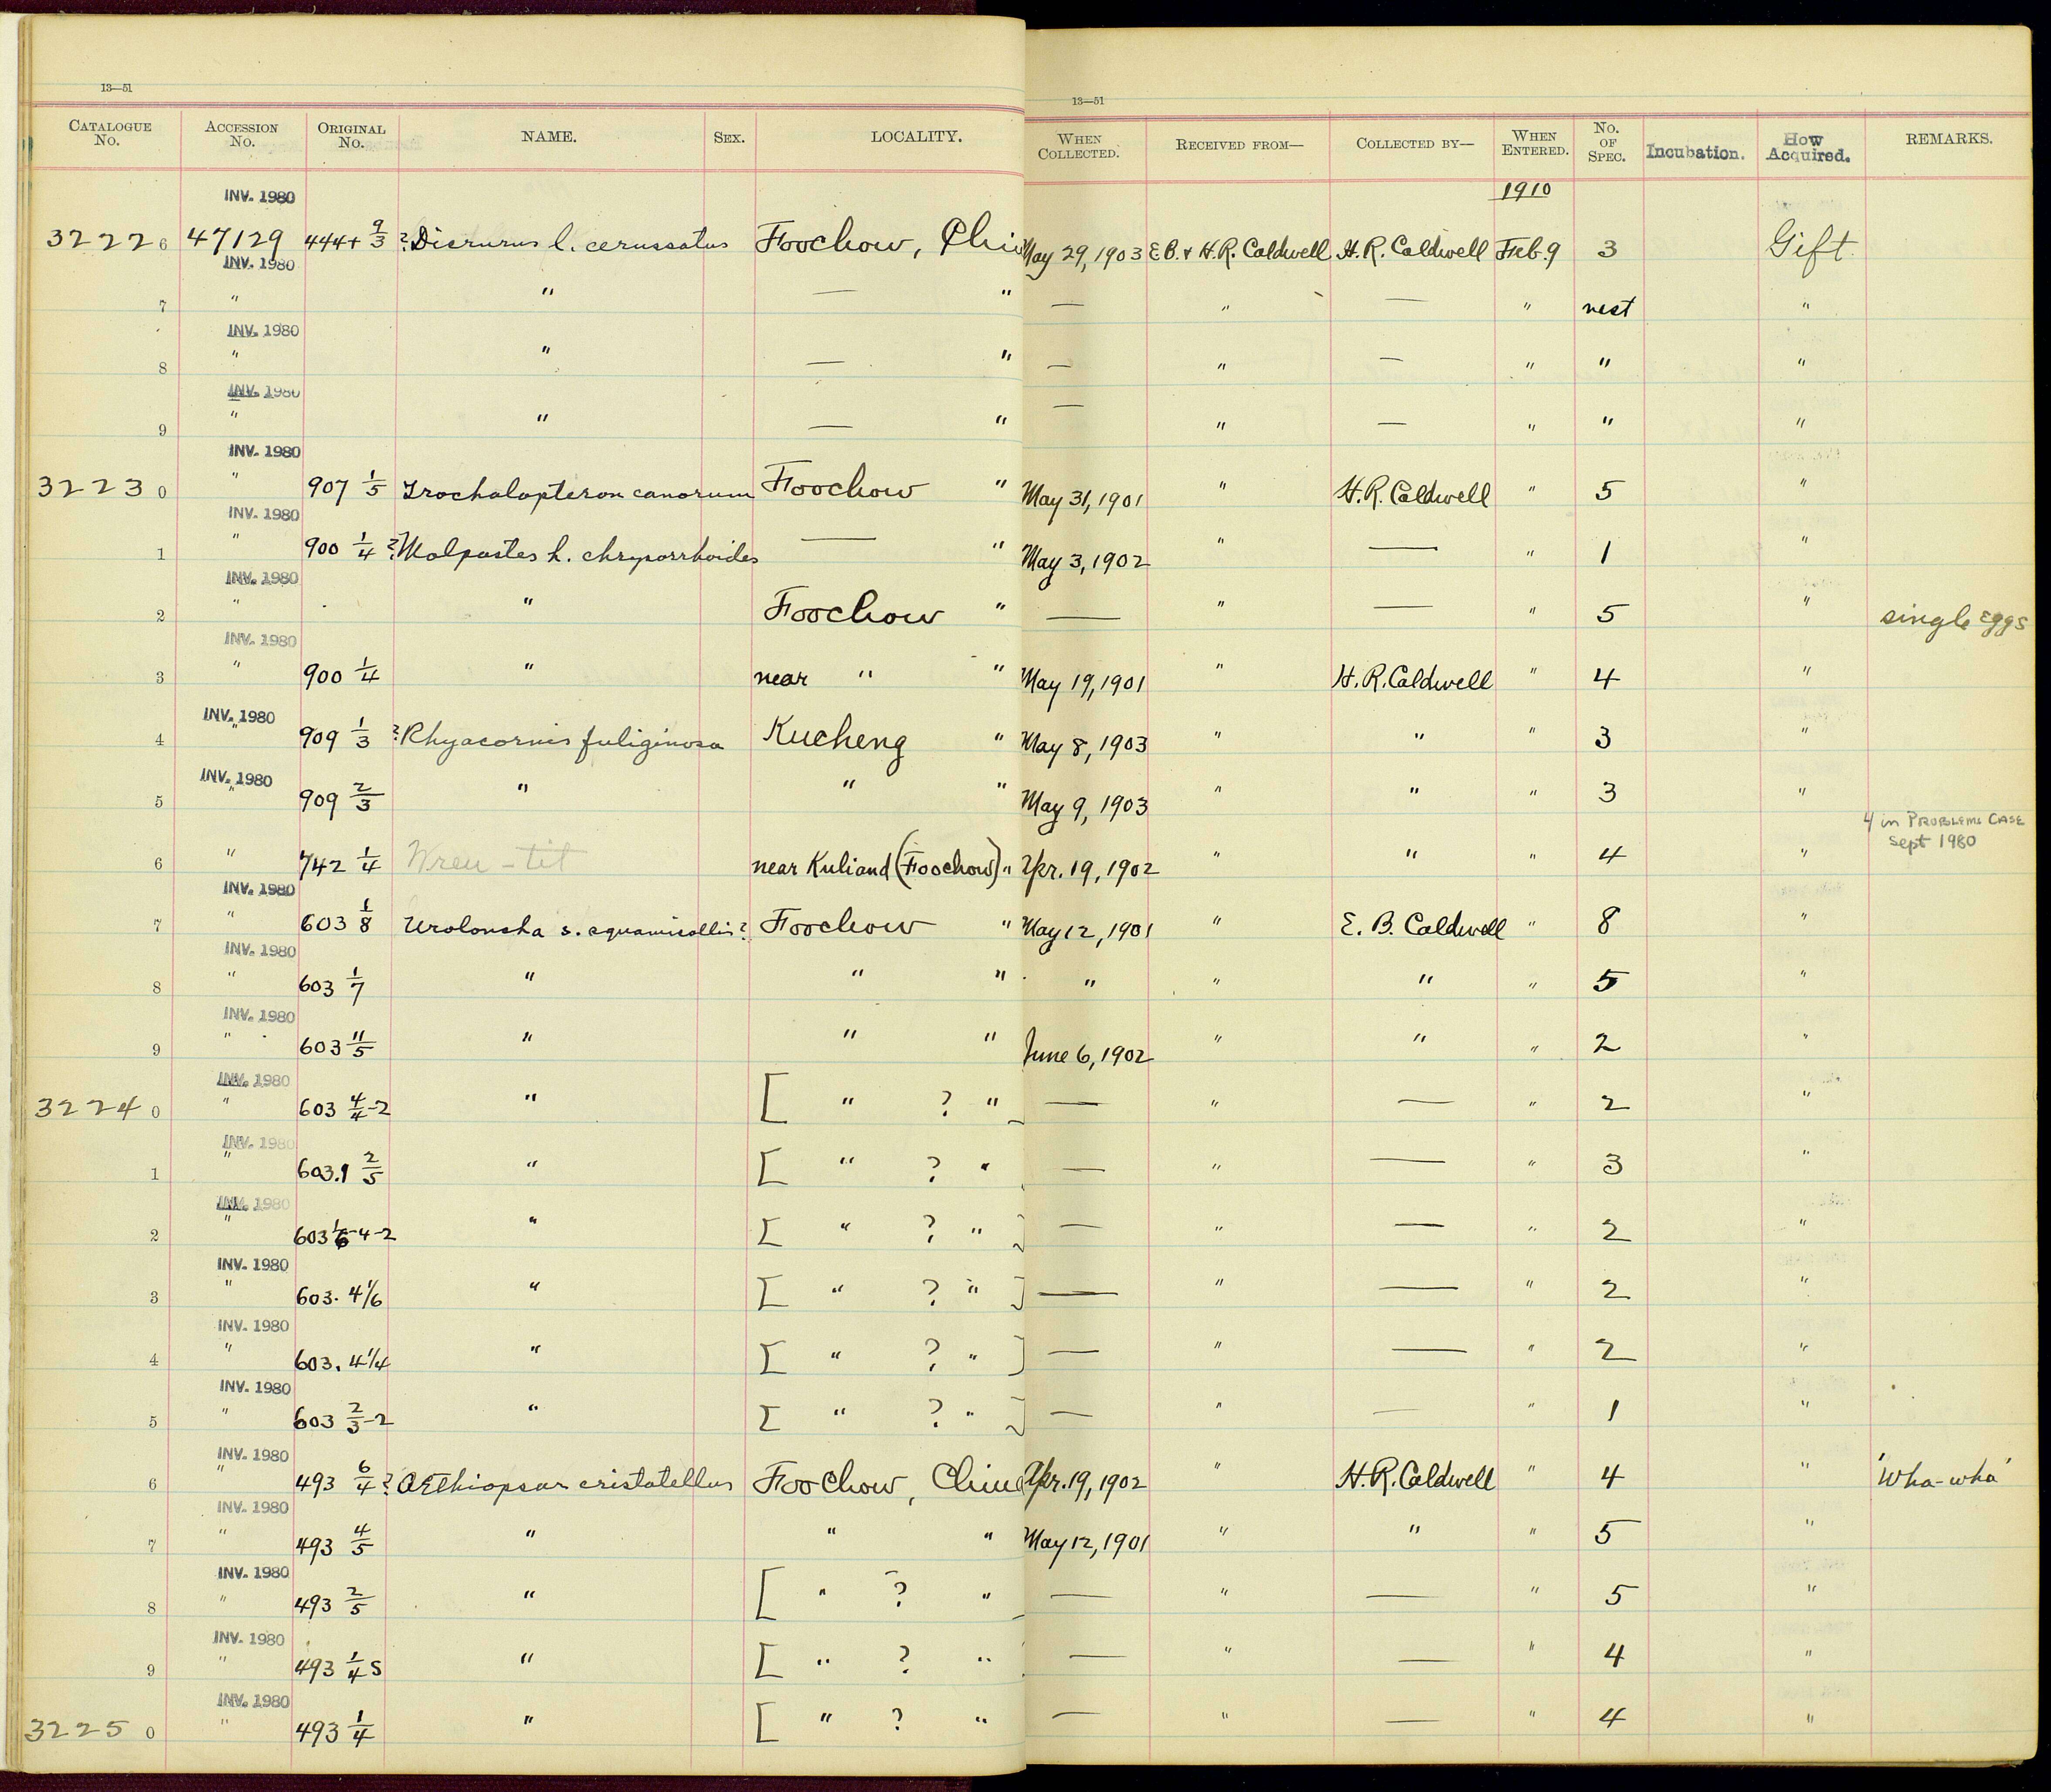 13—51 13—51
CATALOGUE No. ACCESSION No. ORIGINAL No. NAME. SEX. LOCALITY. WHEN COLLECTED. RECEIVED FROM— COLLECTED BY— WHEN ENTERED. No. OF SPEC. Incubation. How Acquired. REMARKS.
INV. 1980 1910
32226 47129 444+ 9/3 ? Dicrurus l. cerussatus Foochow, May 29, 1903 E.B. & H.R. Caldwell H.R. Caldwell Feb. 9 3 Gift
INV. 1980
7 " " — " — " — " nest "
INV. 1980
8 " " — " — " — " " "
INV. 1980
9 " " — " — " — " " "
INV. 1980
32230 " 907 1/5 Trochalopteron canorum Foochow " May 31, 1901 " H.R. Caldwell " 5 "
INV. 1980
1 " 900 1/4 ? Molpastes h. chrysorrhoides — " May 3, 1902 " — " 1 "
INV. 1980
2 " " Foochow " — " — " 5 " single Eggs
INV. 1980
3 " 900 1/4 " near " " May 19, 1901 " H.R. Caldwell " 4 "
INV. 1980
4 " 909 1/3 ? Rhyacornis fuliginosa Kucheng " May 8, 1903 " " " 3 "
INV. 1980
5 " 909 2/3 " " " May 9, 1903 " " " 3 "
4 in PROBLEMS CASE
Sept 1980
6 " 742 1/4 Wren-tit near Kuliand (Foochow) " Apr. 19, 1902 " " " 4 "
INV. 1980
7 " 603 1/8 Uroloncha s. squamicollis ? Foochow " May 12, 1901 " E. B. Caldwell " 8 "
INV. 1980
8 " 603 1/7 " " " " " " " 5 "
INV. 1980
9 " 603 11/5 " " " June 6, 1902 " " " 2 "
INV. 1980
32240 " 603 4/4-2 " [ " ? " — " — " 2 "
INV. 1980
1 " 603.1 2/5 " [ " ? " — " — " 3 "
INV. 1980
2 " 603 1/6-4-2 " [ " ? " ] — " — " 2 "
INV. 1980
3 " 603. 4 1/6 " [ " ? " ] — " — " 2 "
INV. 1980
4 " 603. 4 1/4 " [ " ? " ] — " — " 2 "
INV. 1980
5 " 603 2/3-2 " [ " ? " ] — " — " 1 "
INV. 1980
6 " 493 6/4 ? Æthiopsar cristatellus Foochow, China Apr. 19, 1902 " H.R. Caldwell " 4 " 'Wha-wha'
INV. 1980
7 " 493 4/5 " " " May 12, 1901 " " " 5 "
INV. 1980
8 " 493 2/5 " [ " ? " — " — " 5 "
INV. 1980
9 " 493 1/4 S " [ " ? " — " — " 4 "
INV. 1980
32250 " 493 1/4 " [ " ? " — " — " 4 "